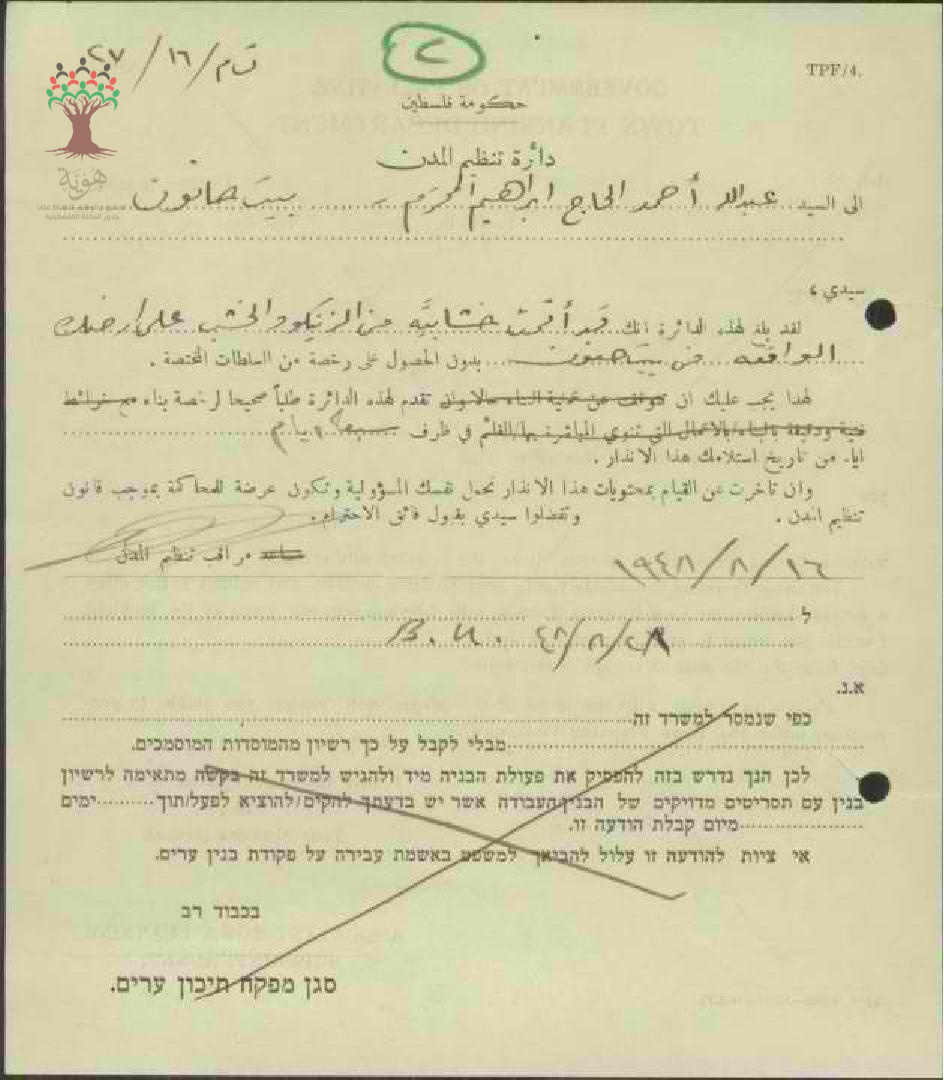 ق م / ١٦ / ٢٧
TPF/4.
حكومة فلسطين
دائرة تنظيم المدن
هوية
الى السيد عبدالله أحمد الحاج ابراهيم المحرم بيت حانون
سيدي ،
لقد بلغ لهذه الدائرة انك قد أقمت خشابيه من الزنكو والخشب على ارضك
الواقعه في بيت حانون بدون الحصول على رخصة من السلطات المختصة .
لهذا يجب عليك ان تتوقف عن عملية البناء حالا وان تقدم لهذه الدائرة طلباً صحيحا لرخصة بناء مع خرائط
فنية ودقيقة بالبناء/بالاعمال التي تنوي المباشرة بها/القائم في ظرف
ايا. من تاريخ استلامك هذا الانذار .
وان تأخرت عن القيام بمحتويات هذا الانذار تحمل نفسك المسؤولية وتكون عرضة للمحاكمة بموجب قانون
تنظيم المدن . وتفضلوا سيدي بقبول فائق الاحترام .
مساعد مراقب تنظيم المدن
١٩٤٨/٨/١٦
ل
B. U.
א.נ.
כפי שנמסר למשרד זה
מבלי לקבל על כך רשיון מהמוסדות המוסמכים.
לכן הנך נדרש בזה להפסיק את פעולת הבניה מיד ולהגיש למשרד זה בקשה מתאימה לרשיון
בנין עם תסריטים מדויקים של הבנין/העבודה אשר יש בדעתך להקים/להוציא לפעל/תוך ימים
מיום קבלת הודעה זו.
אי ציות להודעה זו עלול להביאך למשפט באשמת עבירה על פקודת בנין ערים.
בכבוד רב
סגן מפקח תיכון ערים.